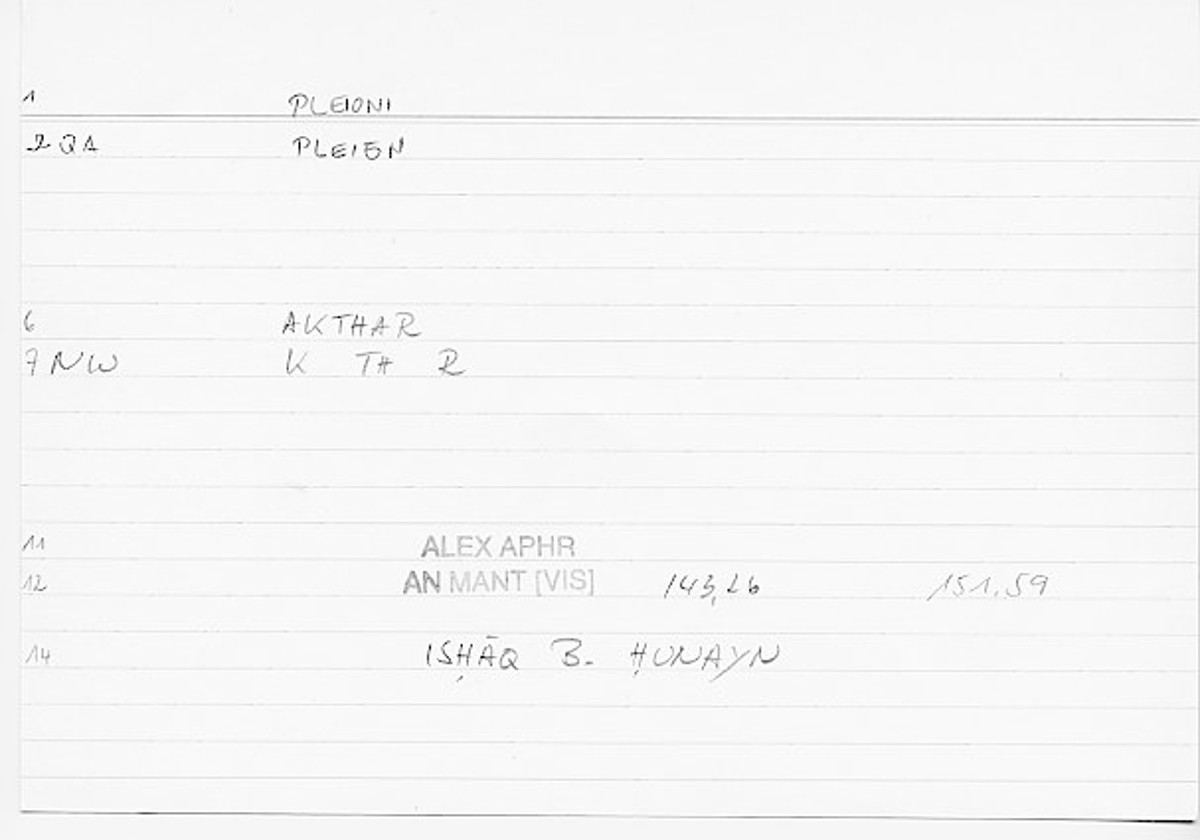 1 PLEIONI
2 QA PLEIEN
6 AKTHAR
7 NW K TH R
11 ALEX APHR
12 AN MANT [VIS] 143,26 151.59
14 ISḤĀQ B. ḤUNAYN